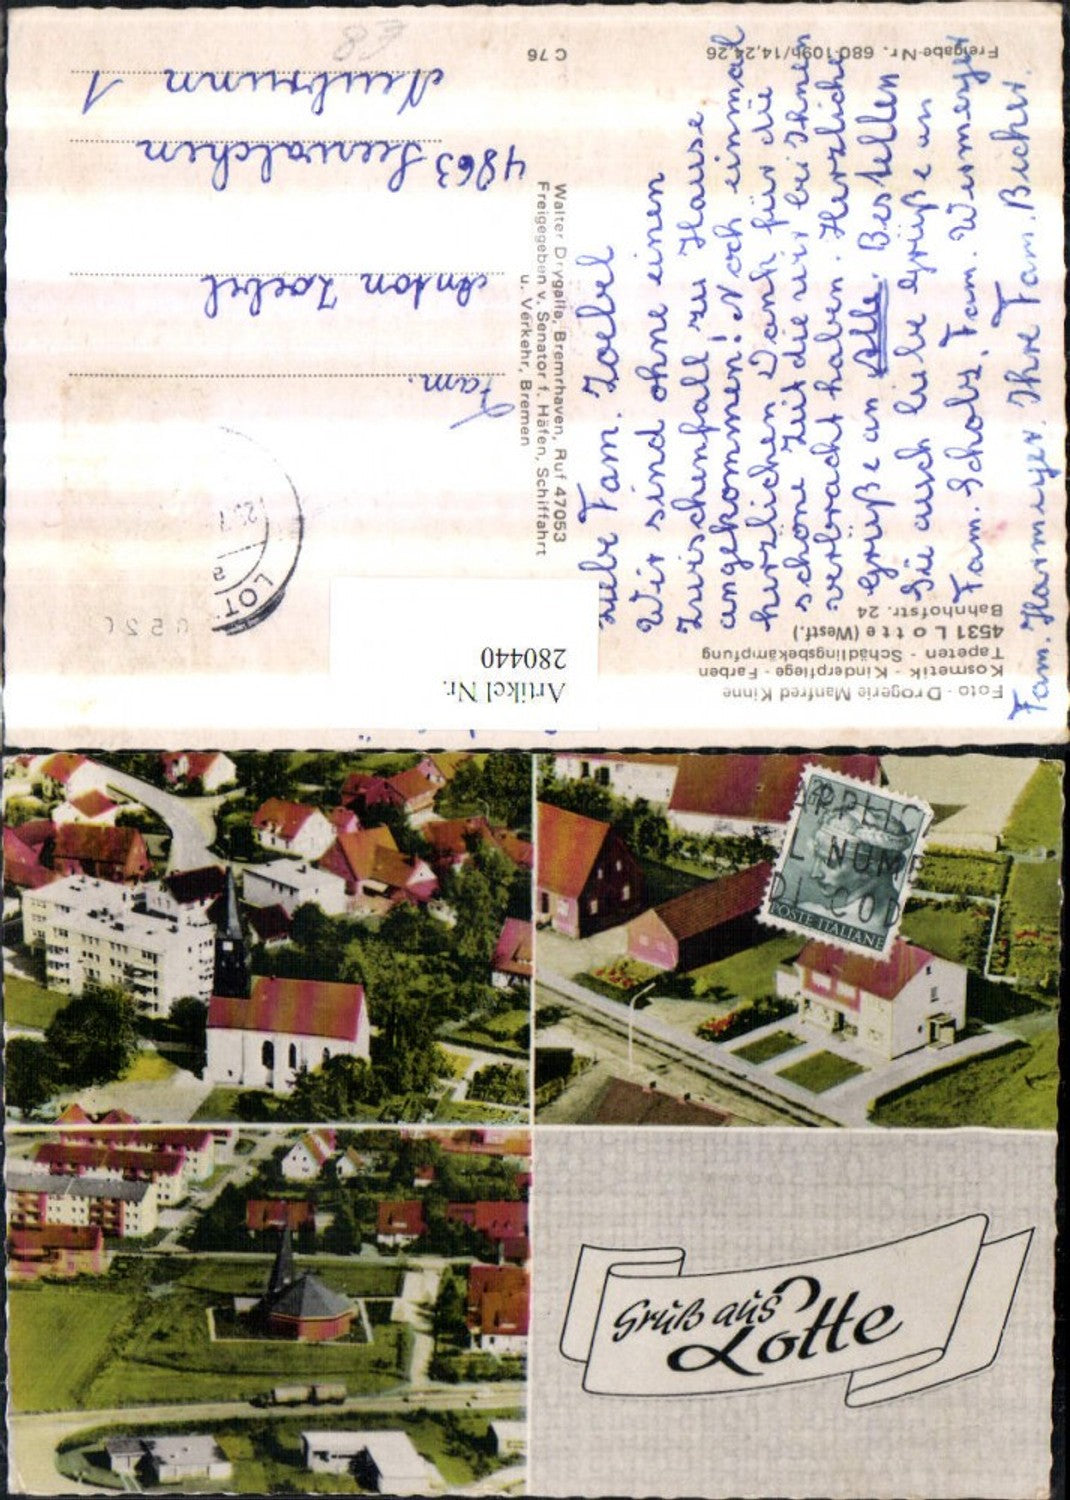 Foto - Drogerie Manfred Kinne
Kosmetik - Kinderpflege - Farben
Tapeten - Schädlingsbekämpfung
4531 Lotte (Westf.)
Bahnhofstr. 24
Liebe Fam. Zoebl
Wir sind ohne einen
Zwischenfall zu Hause
angekommen! Noch einmal
herzlichen Dank für die
schöne Zeit die wir bei Ihnen
verbracht haben. Herzliche
Grüße an Alle. Bestellen
Sie auch liebe Grüße an
Fam. Scholz, Fam. Wesmeyer
Fam. Harmeyer. Ihre Fam. Becher.
Freigabe-Nr. 680-109h/14,24,26
C 76
Walter Drygalla, Bremrhaven, Ruf 47053
Freigegeben v. Senator f. Häfen, Schiffahrt
u. Verkehr, Bremen
Artikel Nr.
280440
LOT
2
Fam.
Anton Zoebl
4863 Seewalchen
Neubrunn 1
E8
L NUM
DI COD
POSTE ITALIANE
Gruß aus
Lotte